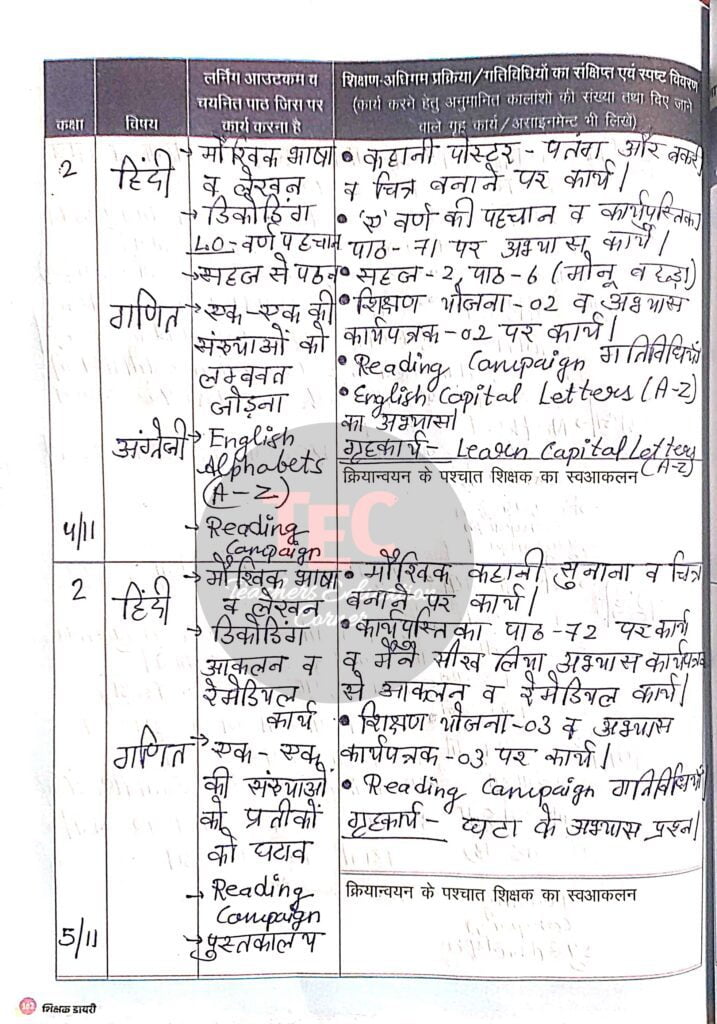 कक्षा
विषय
लर्निंग आउटकम व
चयनित पाठ जिस पर
कार्य करना है
शिक्षण-अधिगम प्रक्रिया/गतिविधियों का संक्षिप्त एवं स्पष्ट विवरण
(कार्य करने हेतु अनुमानित कालांशों की संख्या तथा दिए जाने
वाले गृह कार्य/असाइनमेन्ट भी लिखें)
2
हिंदी
→ मौखिक भाषा
व लेखन
→ डिकोडिंग
LO- वर्ण पहचान
→ सहज से पठन
गणित
→ एक-एक की
संख्याओं को
लम्बवत
जोड़ना
अंग्रेजी
→ English
Alphabets
(A-Z)
→ Reading
Campaign
4/11
• कहानी पोस्टर - पतंग और बकरी
व चित्र बनाने पर कार्य।
• वर्ण की पहचान व कार्यपुस्तिका
पाठ- 71 पर अभ्यास कार्य।
• सहज-2, पाठ-6 (मोनू व
• शिक्षण योजना-02 व अभ्यास
कार्यपत्रक-02 पर कार्य।
• Reading Campaign गतिविधियाँ
• English Capital Letters (A-Z)
का अभ्यास।
गृहकार्य- Learn Capital Letters
(A-Z)
क्रियान्वयन के पश्चात शिक्षक का स्वआकलन
2
हिंदी
→ मौखिक भाषा
व लेखन
→ डिकोडिंग
आकलन व
रेमेडियल
कार्य
गणित
→ एक-एक
की संख्याओं
को प्रतीकों
को घटाव
→ Reading
Campaign
→ पुस्तकालय
5/11
• मौखिक कहानी सुनाना व चित्र
बनाने पर कार्य।
• कार्यपुस्तिका पाठ-72 पर कार्य
व मैंने सीख लिया अभ्यास कार्यपत्रक
से आकलन व रेमेडियल कार्य।
• शिक्षण योजना-03 व अभ्यास
कार्यपत्रक-03 पर कार्य।
• Reading Campaign गतिविधियाँ।
गृहकार्य- घटा के अभ्यास प्रश्न।
क्रियान्वयन के पश्चात शिक्षक का स्वआकलन
TEC
Teachers Education
Corner
162 शिक्षक डायरी